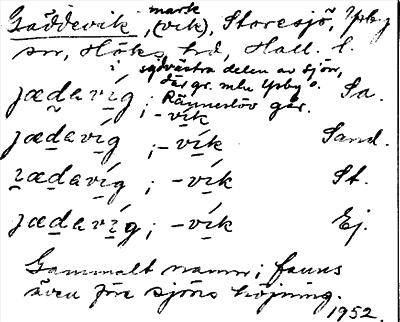 Gäddevik, mark (vik), Storesjö, Ysby
sn, Höks hd, Hall. l.
i sydvästra delen av sjön,
där gr. mln Ysby o.
Ränneslöv går.
jædavíg ; -vík Sa.
jædavíg ; -vík Sand.
jædavíg ; -vík St.
jædavíg ; -vík Ej.
Gammalt namn; fanns
även före sjöns höjning.
1952.